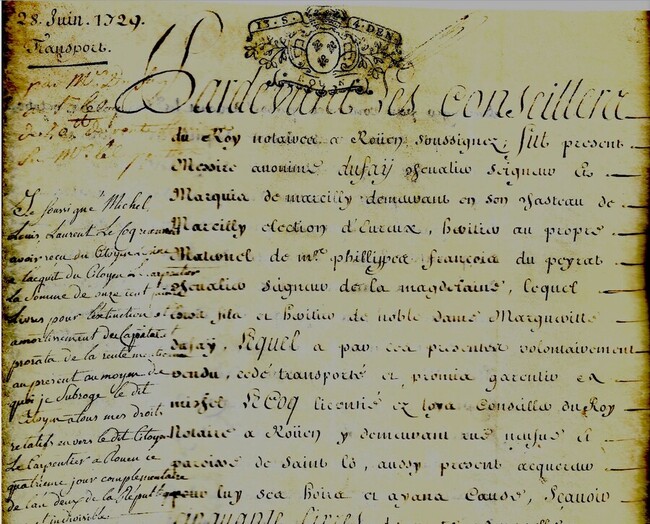 28. Juin. 1729.
Transport.
13. S. 4. DEN
ROUEN
Pardevant Les conseillers
du Roy notaires a Roüen soussignez, fut present
Messire anonime dufaÿ chevalier seigneur et
Marquis de marcilly demeurant en son chasteau de
Marcilly election d'Eureux, heritier au propre
Maternel de mre phillippes françois du peyrat
chevalier seigneur de la magdelaine, lequel
estoit fils et heritier de noble dame Margueritte
dufaÿ, Lequel a par ces presentes volontairement
vendu, cedé transporté et promis garentir a
michel LeCoq licentié ez loys Conseiller du Roy
Notaire a Roüen y demeurant rüe neufve et
paroisse de Saint Lô, aussy present acquereur
pour luy ses hoirs et ayans Cause, Sçavoir
Cinquante livres de
par Mre
Je soussigné Michel
Louis Laurent Le Coq
avoir recu du Citoyen
a lacquit du Citoyen Le Carpentier
la somme de onze cent
Livres pour l'extinction et
amortissement du Capital et
prorata de la rente
au present au moyen de
quoi je subroge le dit
Citoyen a tous mes droits
relatifs envers le dit Citoyen
Le Carpentier a Rouen ce
quatrieme jour complementaire
de l'an deux de la Republique
et indivisible